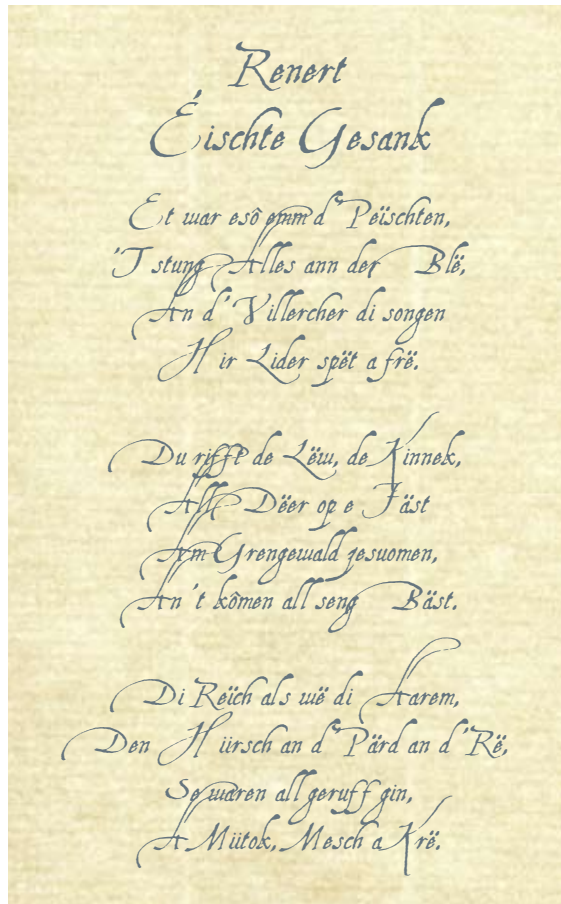 Renert
Éischte Gesank
Et war esô ëmm d'Peïschten,
'T stung Alles ann der Blë,
An d'Villercher di songen
Hir Lider spët a frë.
Du rifft de Lëw, de Kinnek,
All Dëer op e Fäst
Am Grengewald zesuomen,
An 't kômen all seng Bäst.
Di Reïch als wë di Aarem,
Den Hiirsch an d'Pärd an d'Rë,
Se waren all geruff gin,
A Miitok, Mesch a Krë.